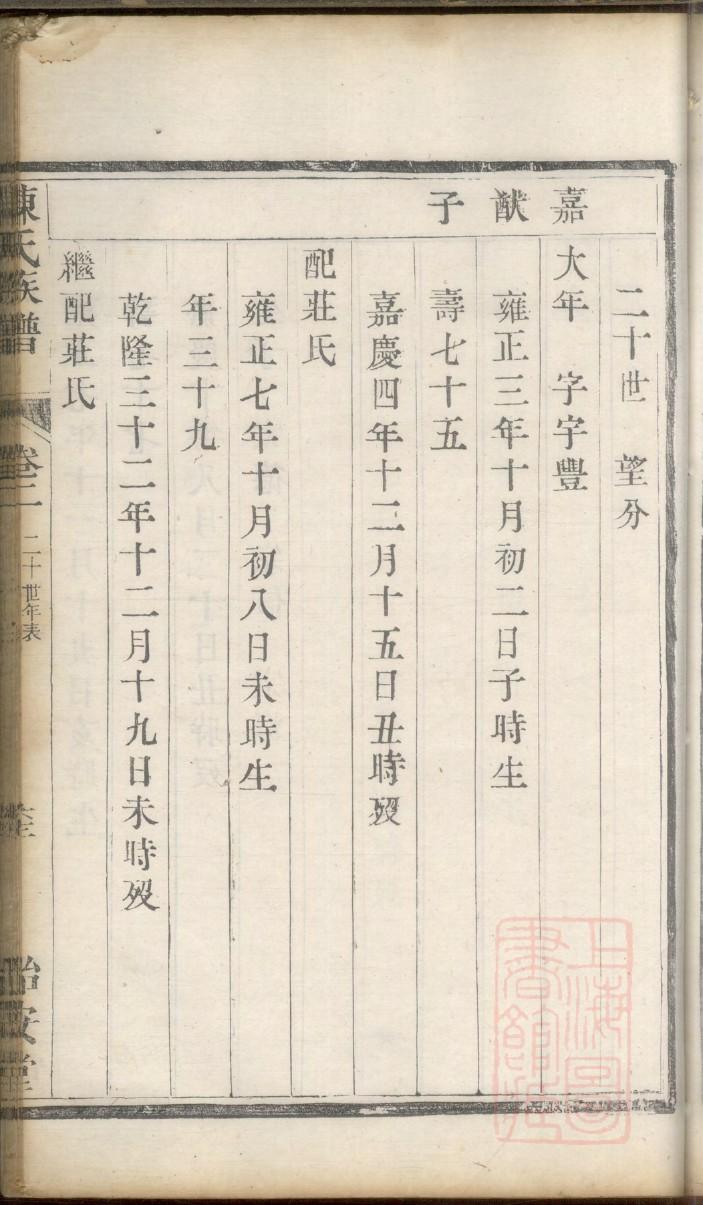 二十世 望分
嘉猷子
大年 字字豐
雍正三年十月初二日子時生
壽七十五
嘉慶四年十二月十五日丑時歿
配莊氏
雍正七年十月初八日未時生
年三十九
乾隆三十二年十二月十九日未時歿
繼配莊氏
陳氏族譜
卷二
二十世年表
怡安堂
上海圖書館藏